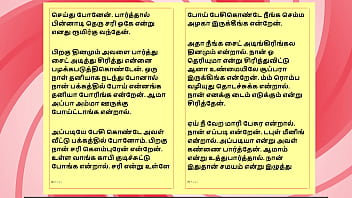 செய்து போனேன். பார்த்தால்
பின்னாடி தெரு சரி ஓகே என்று
எனது ரூமிற்கு வந்தேன்.
பிறகு தினமும் அவளை பார்த்து
சைட் அடித்து சிரித்து என்னை
பழக்கப்படுத்திக்கொண்டேன். ஒரு
நாள் தனியாக நடந்து போனாள்
நான் பக்கத்தில் போய் என்னங்க
தனியா போரீங்க என்றேன். ஆமா
அப்பா அம்மா ஊருக்கு
போய்ட்டாங்க என்றாள்.
அப்படியே பேசி கொண்டே அவள்
வீட்டு பக்கத்தில் போனோம். பிறகு
நான் சரி கெளம்புரேன் என்றேன்.
உள்ள வாங்க காபி குடிச்சுட்டு
போங்க என்றாள். சரி என்று உள்ளே
போய் பேசிகொண்டே நீங்க செம்ம
அழகா இருக்கீங்க என்றேன்.
அதா நீங்க சைட் அடிங்கிரிங்கல
தினமும் என்றாள். நான் ஓ
தெரியுமா என்று சிரித்துவிட்டு
ஆனா உண்மையிலே சூப்பரா
இருக்கிங்க என்றேன். ம்ம் ரொம்ப
வழியுது தொடச்சுக்க என்றாள்.
நான் எனக்கு டைம் எடுக்கும் என்று
சிரித்தேன்.
ஏய் நீ வேற மாரி பேசுர என்றாள்.
நான் எப்படி என்றேன். டபுள் மீனிங்
என்றாள். அப்படியா என்று அவள்
கண்ணை பார்த்தேன். ஆமாம்
என்று உத்துபார்த்தாள். நான்
இதுதான் சமயம் என்று இழுத்து